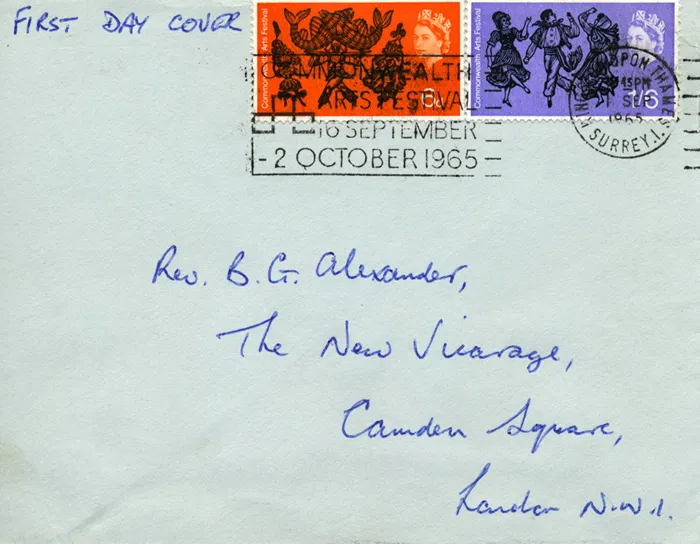 FIRST DAY COVER
Commonwealth Arts Festival
6d
Commonwealth Arts Festival
1/6
COMMONWEALTH
ARTS FESTIVAL
16 SEPTEMBER
- 2 OCTOBER 1965
UPON THAMES
15PM
1 SEP
1965
SURREY.I.
Rev. B. G. Alexander,
The New Vicarage,
Camden Square,
London N.W.1.